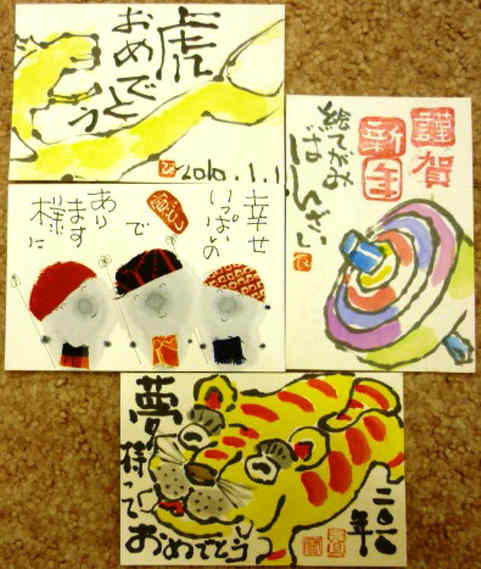 虎
おめでとう
2010.1.1
ひ
謹賀
新年
絵てがみ
ばんざい
幸せ
いっぱいの
で
あり
ます
様に
夢
持って
おめでとう
二〇一〇
年